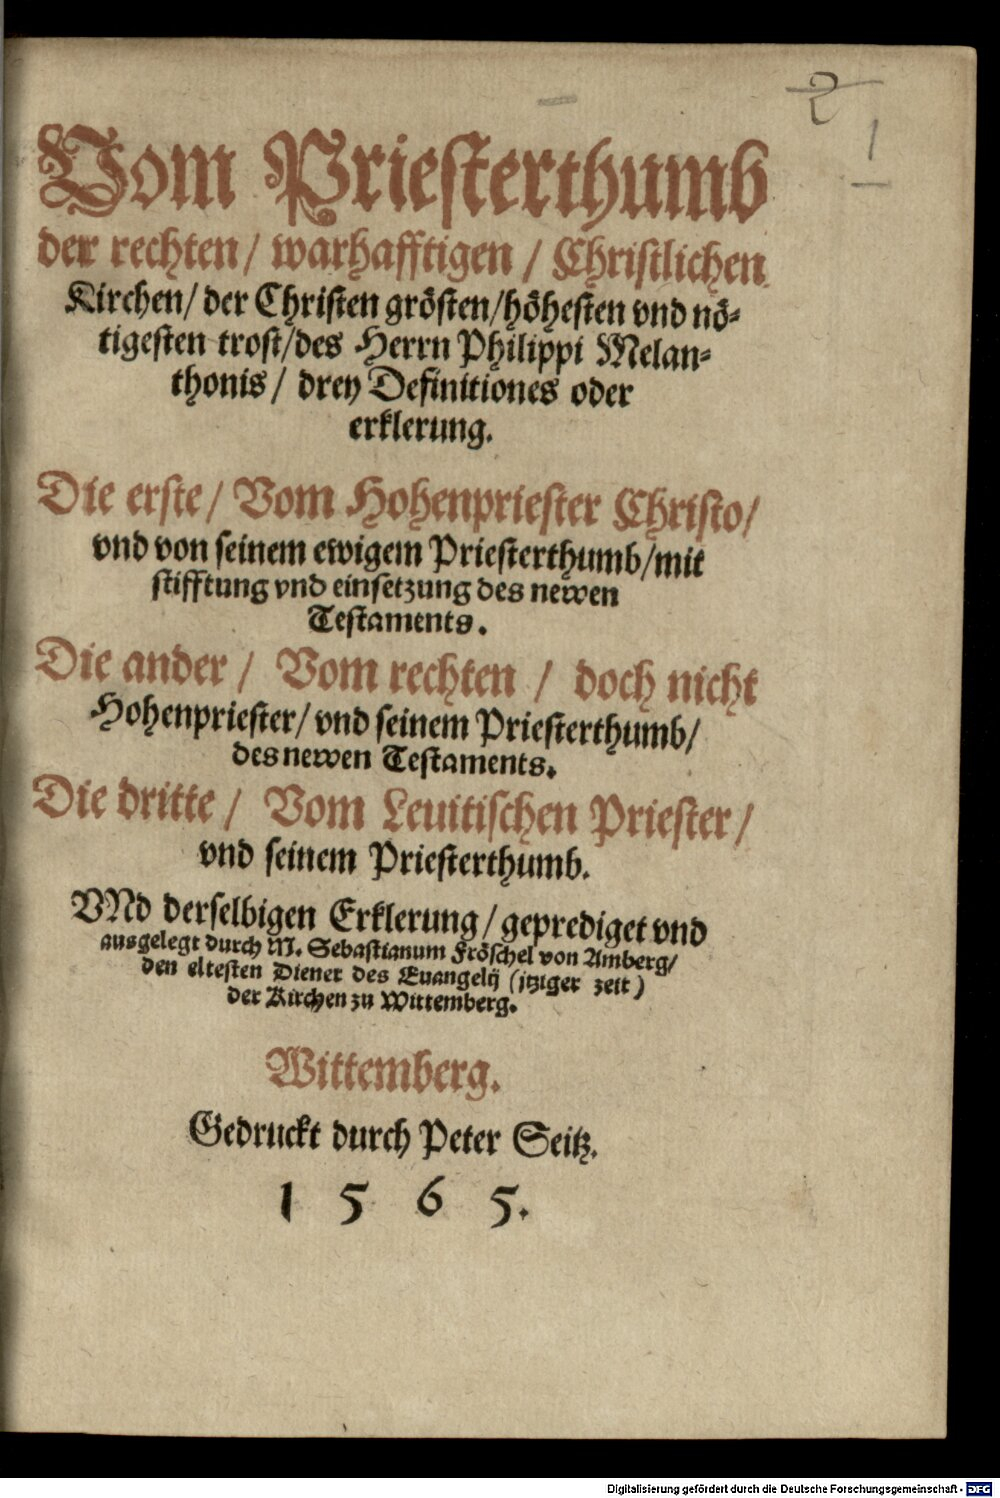 2
1
Vom Priesterthumb
der rechten/ warhafftigen/ Christlichen
Kirchen/ der Christen grösten/höhesten vnd nö-
tigesten trost/des Herrn Philippi Melan-
thonis/ drey Definitiones oder
erklerung.
Die erste/ Vom Hohenpriester Christo/
vnd von seinem ewigem Priesterthumb/mit
stifftung vnd einsetzung des newen
Testaments.
Die ander/ Vom rechten/ doch nicht
Hohenpriester/ vnd seinem Priesterthumb/
des newen Testaments.
Die dritte/ Vom Leuitischen Priester/
vnd seinem Priesterthumb.
VNd derselbigen Erklerung/ geprediget vnd
ausgelegt durch M. Sebastianum Fröschel von Amberg/
den eltesten Diener des Euangelij (itziger zeit)
der Kirchen zu Wittemberg.
Wittemberg.
Gedruckt durch Peter Seitz.
1 5 6 5.
Digitalisierung gefördert durch die Deutsche Forschungsgemeinschaft - DFG